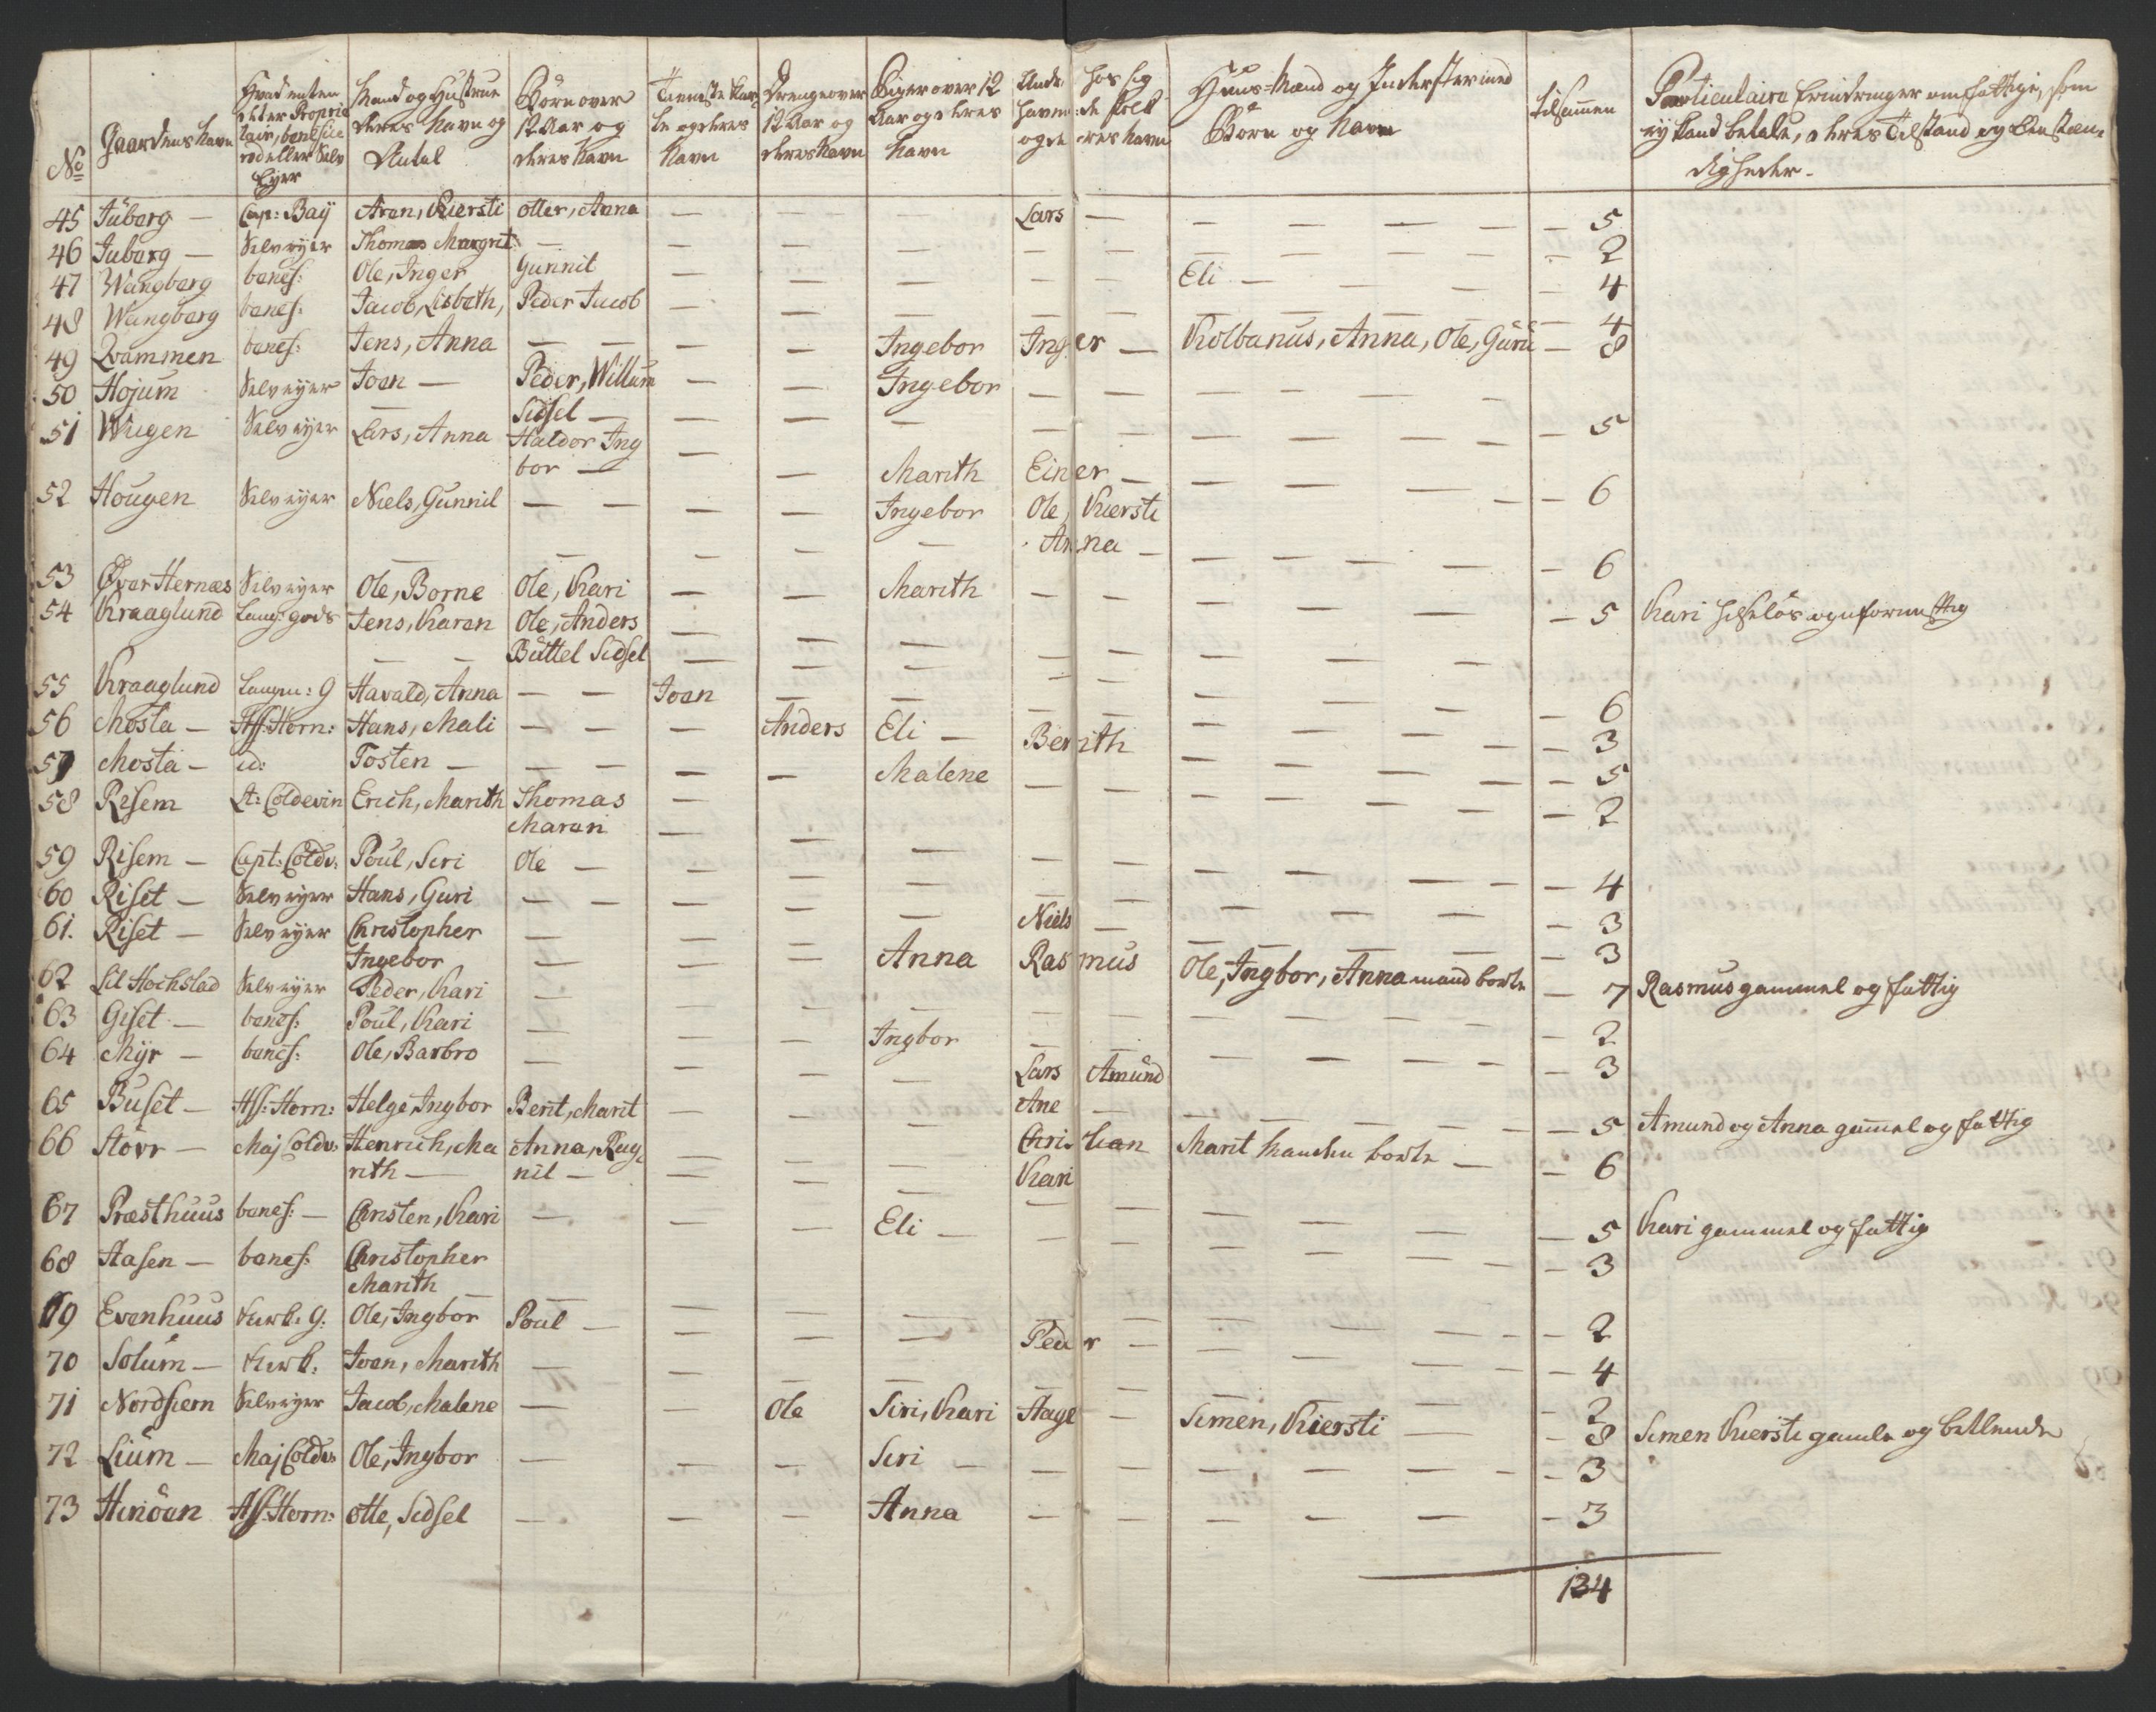 No Gaardens Navn Hvad enten det er Proprietair, benificered eller Selv Eyer Mand og Hustrue deres Navn og Antal Børn over 12 Aar og deres Navn Tieneste Karle og deres Navn Drenge over 12 Aar og deres Navn Piger over 12 Aar og deres Navn Andre hos sig havende Folk og deres Navn Huus-Mænd og Inderster med Børn og Navn tilsammen Particulaire Erindringer om fattige, som ey kand betale, deres Tilstand og Omstændigheder.
45 Juberg — Cap: Baÿ Aron, Kiersti Otter, Anna — — — Lars — — — — — 5
46 Juberg — Selveÿer Thomas Margret — — — — — — — — — 2
47 Wangberg benef: Ole, Inger Gunnil — — — — — Eli — — — — 4
48 Wangberg benef: Jacob, Lisbeth, Peder Jacob — — — — — — — — — 4
49 Qvammen benef: Jens, Anna — — — — Ingebor Inger — Kolbanus, Anna, Ole, Guru — 8
50 Hojum Selveÿer Joen — Peder, Willum — — Ingebor — — — — — —
— Sidsel — — — — — — — — — — — 5
51 Wiigen Selveÿer Lars, Anna Haldor Ing
bor — — — Marith Einer — — — — — — 6
52 Hougen Selveÿer Niels, Gunnil — — — — Ingebor Ole, Kiersti
— — — — — Anna — — — — — — 6
53 Øver Hernæs Selveÿer Ole, Borne Ole, Kari — — Marith — — — — — — 5 Kari helseløs og uformuftig
54 Kraaglund Lang: gods Jens, Karen Ole, Anders — — — — — — — —
— — Büttel Sidsel — — — — — — — — — 6
55 Kraaglund Langm: G Havald, Anna — — Joen — — — — — — — — 3
56 Mosta — Ass: Horn: Hans, Mali — — — Anders Eli — Berith — — — — — 5
57 Mosta — id: Tosten — — — — — Malene — — — — — — — 2
58 Risem Lt: Coldevin Erich, Marith Thomas —
Maren — — — — — — — — — — 4
59 Risem — Capt: Coldv: Poul, Siri Ole — — — — — — — — — — 3
60 Riset — Selveÿer Hans, Guri — — — — — Niels — — — — — 3
61. Riset — Selveÿer Christopher — — —
Ingebor — — — Anna Rasmus Ole, Ingbor, Anna mand borte — 7 Rasmus gammel og fattig
62 Lil Hochstad Selveÿer Peder, Kari — — — — — — — — — — 2
63 Giset — benef: Poul, Kari — — — Ingbor — — — — — — — 3
64 Mÿr — benef: Ole, Barbro — — — — Lars Amund
Ane — — — — — — 5 Amund og Anna gammel og fattig
65 Buset — Ass: Horn: Helge, Ingbor Berit, Marit — — — Christian Marit Manden borte — — 6
66 Störr — Maj Coldv: Henrich, Ma Anna, Rag
rith — nil — — — — Kari — — — — — 5 Kari gammel og fattig
67 Præsthuus benef: — Christen, Kari — — — Eli — — — — — — — — 3
68 Stasen — benef: Christopher
Marith — — — — — — — — — — 2
69 Evenhuus Kirk: G: Ole, Ingbor Poul — — — — Peder — — — — — 4
70 Solum — Kirk: Joen, Marith — — — — — — — — — — — 2
71 Nordsiem Selveÿer Jacob, Malene — — Ole Siri, Kari Aage — Simen, Kiersti — — 8 Simen Kiersti gamle og betlende
72 Lium — Maj Coldv: Ole, Ingbor — — — Siri — — — — — — — — 3
73 Hindöen Ass: Horn: Otte, Sidsel — — — Anna — — — — — — — 3
134